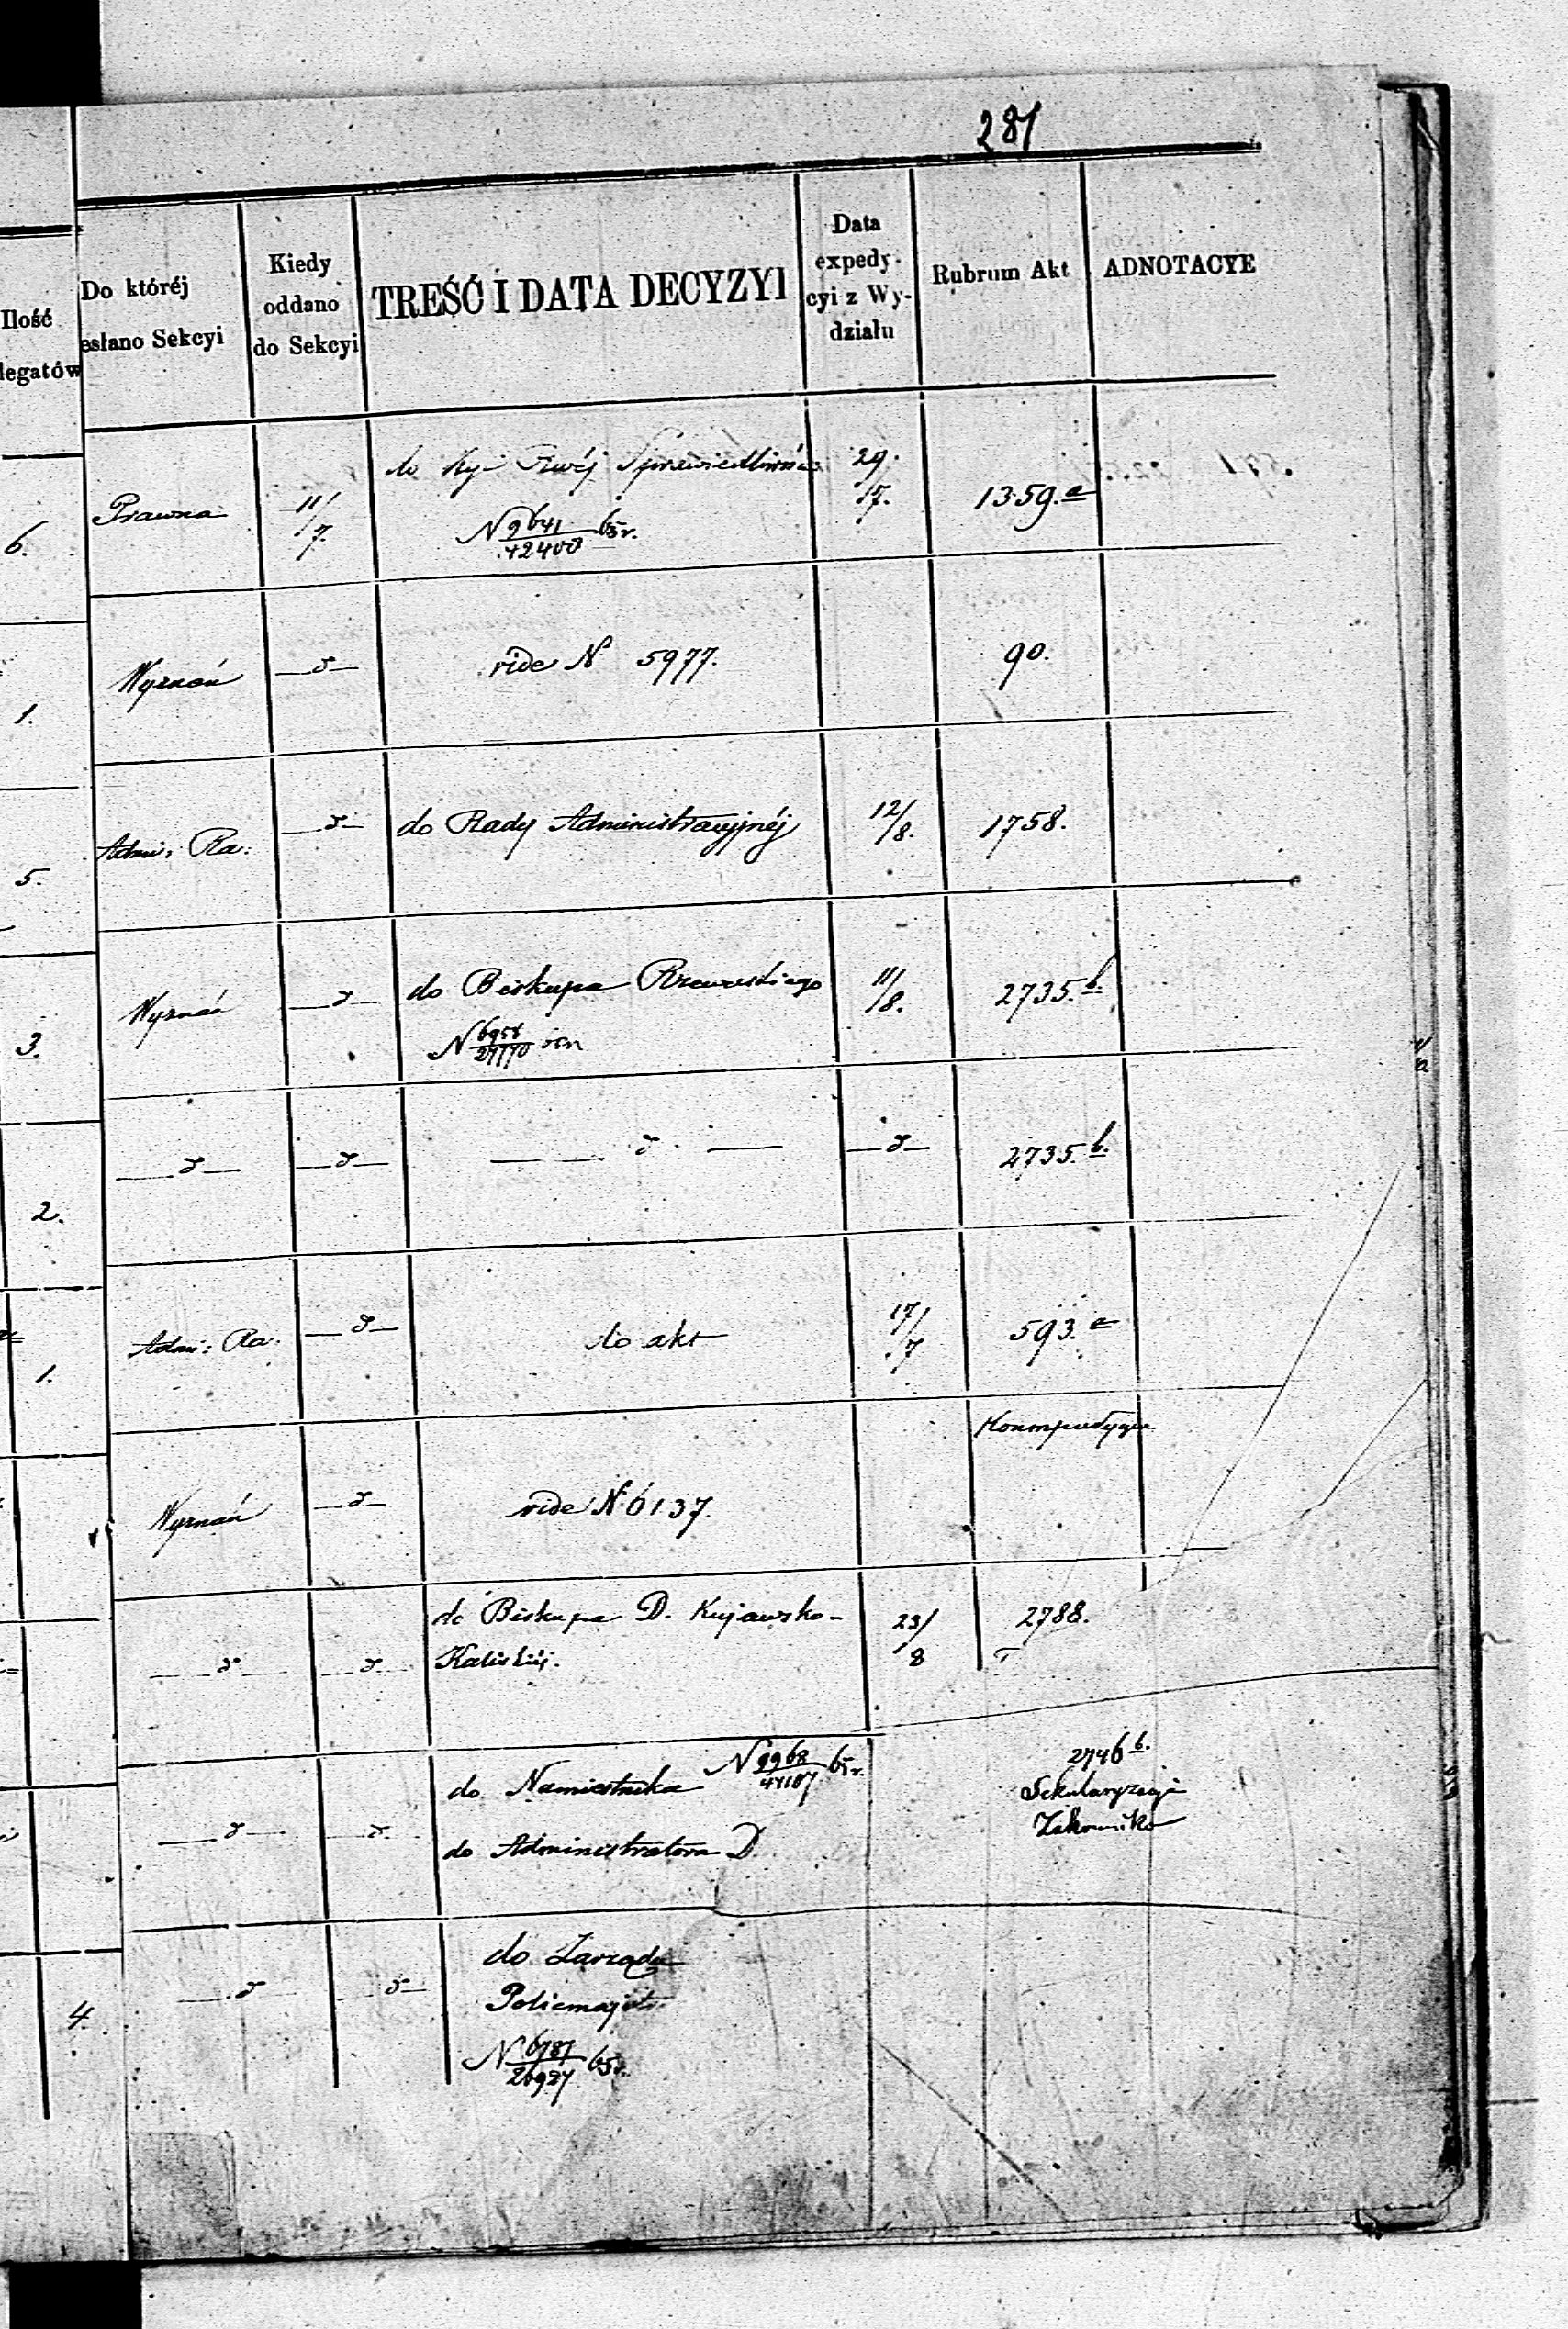 281
Ilość
legatów
Do któréj
esłano Sekcyi
Kiedy
oddano
do Sekcyi
TREŚĆ I DATA DECYZYI
Data
expedy-
cyi z Wy-
działu
Rubrum Akt
ADNOTACYE
6.
Prawna
11/7.
do Sprawiedliwości
N 9641/42400 65 r.
29.
17.
1359. a
1.
Wyznań
—d—
vide N 5977.
90.
5.
Admi: Ra:
—d—
do Rady Administracyjnéj
12/8.
1758.
3.
Wyznań
—d—
do Biskupa Rzewuskiego
N 6958/27770
11/8.
2735. b.
2.
—d—
—d—
— d —
—d—
2735. b.
1.
Admi: Ra:
—d—
do akt
17/7
593. a
Wyznań
—d—
vide N 6137.
—d—
—d—
do Biskupa D. Kujawsko-
Kaliskiéj.
23/8
2788.
—d—
—d—
do Namiestnika N 9968/44187 65 r.
do Administratora D.
2746 b.
Sekularyzacje
4.
—d—
—d—
do Zarządu
Policmajstr.
N 6787/26927 65 r.